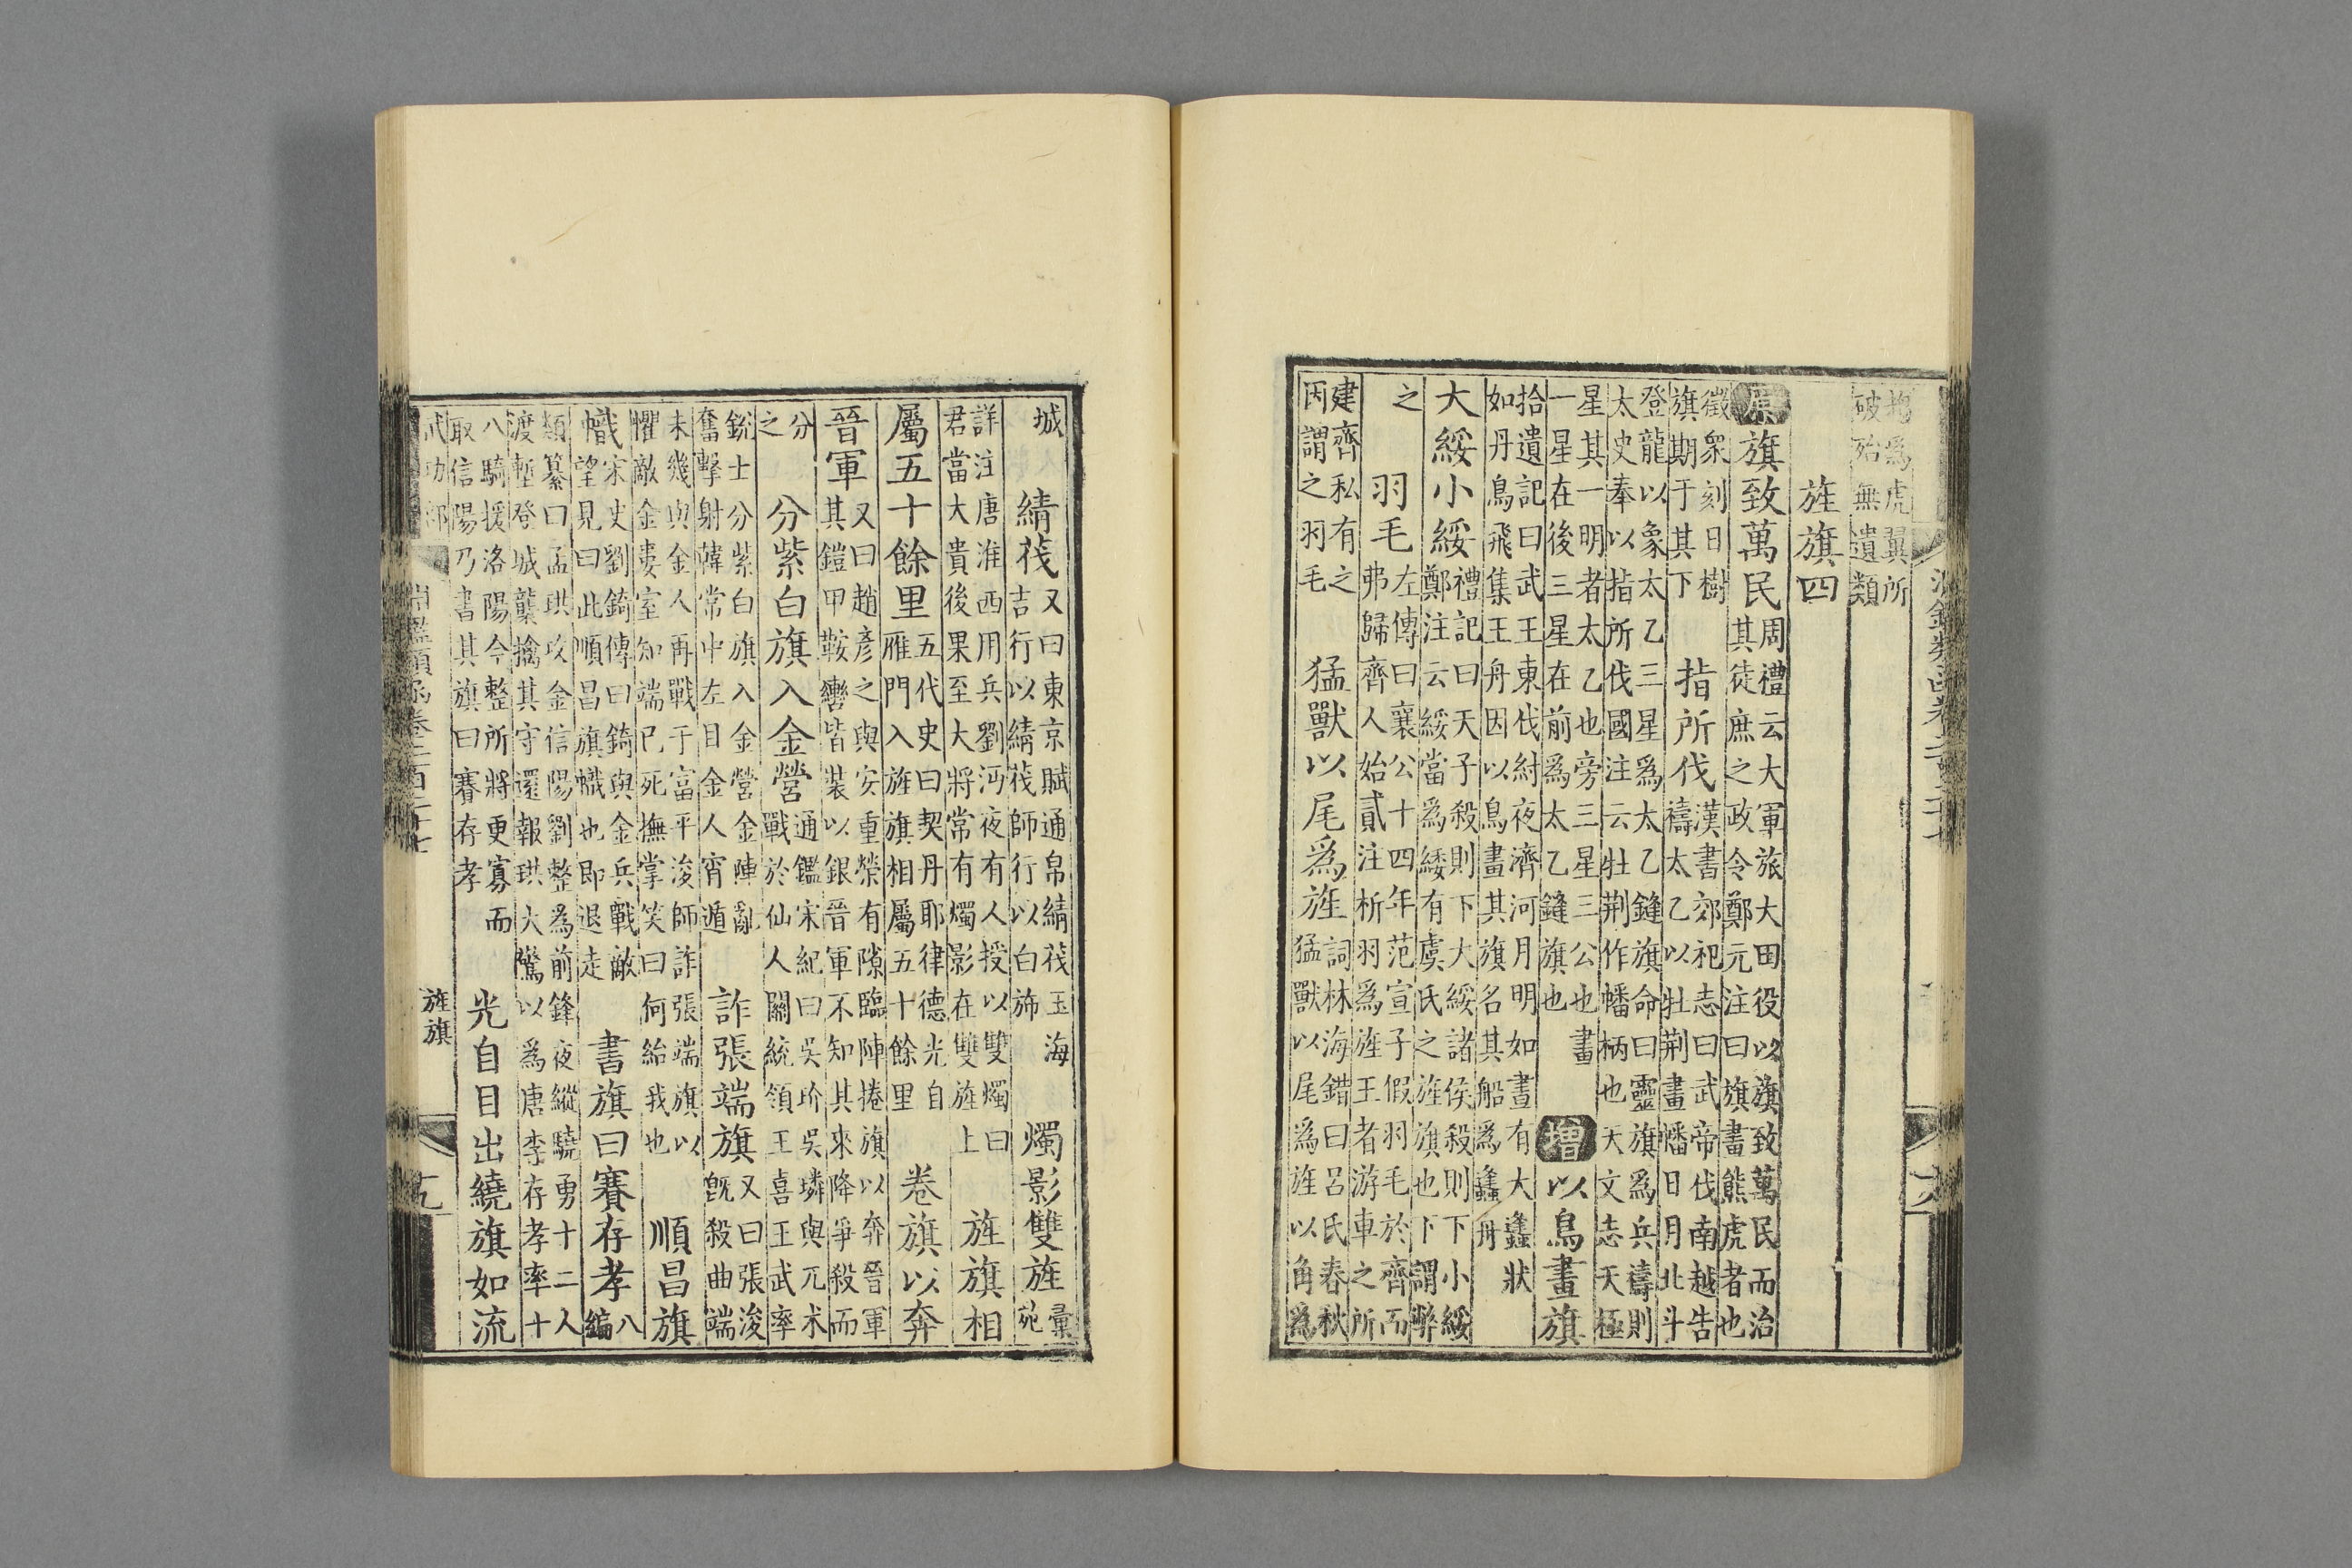 為虎翼所
破殆無遺類
旌旗四
原旗致萬民
周禮云大軍旅大田役以旗致萬民而治
其徒庶之政令鄭元注曰旗畫熊虎者也
徵衆刻日樹
旗期于其下
指所伐
漢書郊祀志曰武帝伐南越告
禱太乙以牡荆畫幡日月北斗
登龍以象太乙三星為太乙鏠旗命曰靈旗為兵禱則
太史奉以指所伐國注云牡荆作幡柄也天文志天極
星其一明者太乙也旁三星三公也畫
一星在後三星在前為太乙鏠旗也
增以鳥畫旗
拾遺記曰武王東伐紂夜濟河月明如晝有大蠭狀
如丹鳥飛集王舟因以鳥畫其旗名其船為蠭舟
大綏小綏
禮記曰天子殺則下大綏諸侯殺則下小綏
鄭注云綏當為緌有虞氏之旌旗也下謂弊
之
羽毛
左傳曰襄公十四年范宣子假羽毛於齊而
弗歸齊人始貳注析羽為旌王者游車之所
建齊私有之
因謂之羽毛
猛獸以尾為旌
詞林海錯曰呂氏春秋
猛獸以尾為旌以角為
城
綪茷
又曰東京賦通帛綪茷玉海
吉行以綪茷師行以白斾
燭影雙旌
彙
苑
詳注唐淮西用兵劉沔夜有人授以雙燭曰
君當大貴後果至大將常有燭影在雙旌上
旌旗相
屬五十餘里
五代史曰契丹耶律德光自
雁門入旌旗相屬五十餘里
卷旗以奔
晉軍
又曰趙彥之與安重榮有隙臨陣捲旗以奔晉軍
其鎧甲鞍轡皆裝以銀晉軍不知其來降爭殺而
分
之
分紫白旗入金營
通鑑宋紀曰吳玠吳璘與兀朮
戰於仙人關統領王喜王武率
銳士分紫白旗入金營金陣亂
奮擊射韓常中左目金人宵遁
詐張端旗
又曰張浚
既殺曲端
未幾與金人再戰于富平浚師詐張端旗以
懼敵金婁室知端已死撫掌笑曰何紿我也
順昌旗
幟
宋史劉錡傳曰錡與金兵戰敵
望見曰此順昌旗幟也即退走
書旗曰賽存孝
八
編
類纂曰孟珙攻金信陽劉整為前鋒夜縱驍勇十二人
渡塹登城襲擒其守還報珙大驚以為唐李存孝率十
八騎援洛陽今整所將更寡而
取信陽乃書其旗曰賽存孝
光自目出繞旗如流
旌旗